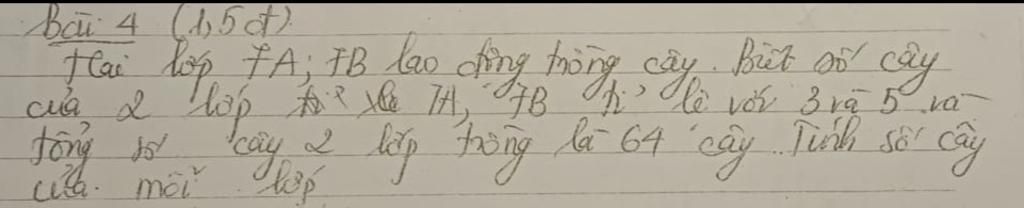 Bài 4 (1,5 đ)
Hai lớp 7A; 7B lao động trồng cây. Biết số cây
của 2 lớp 7A, 7B tỉ lệ với 3 và 5 và
tổng số cây 2 lớp trồng là 64 cây. Tính số cây
của mỗi lớp